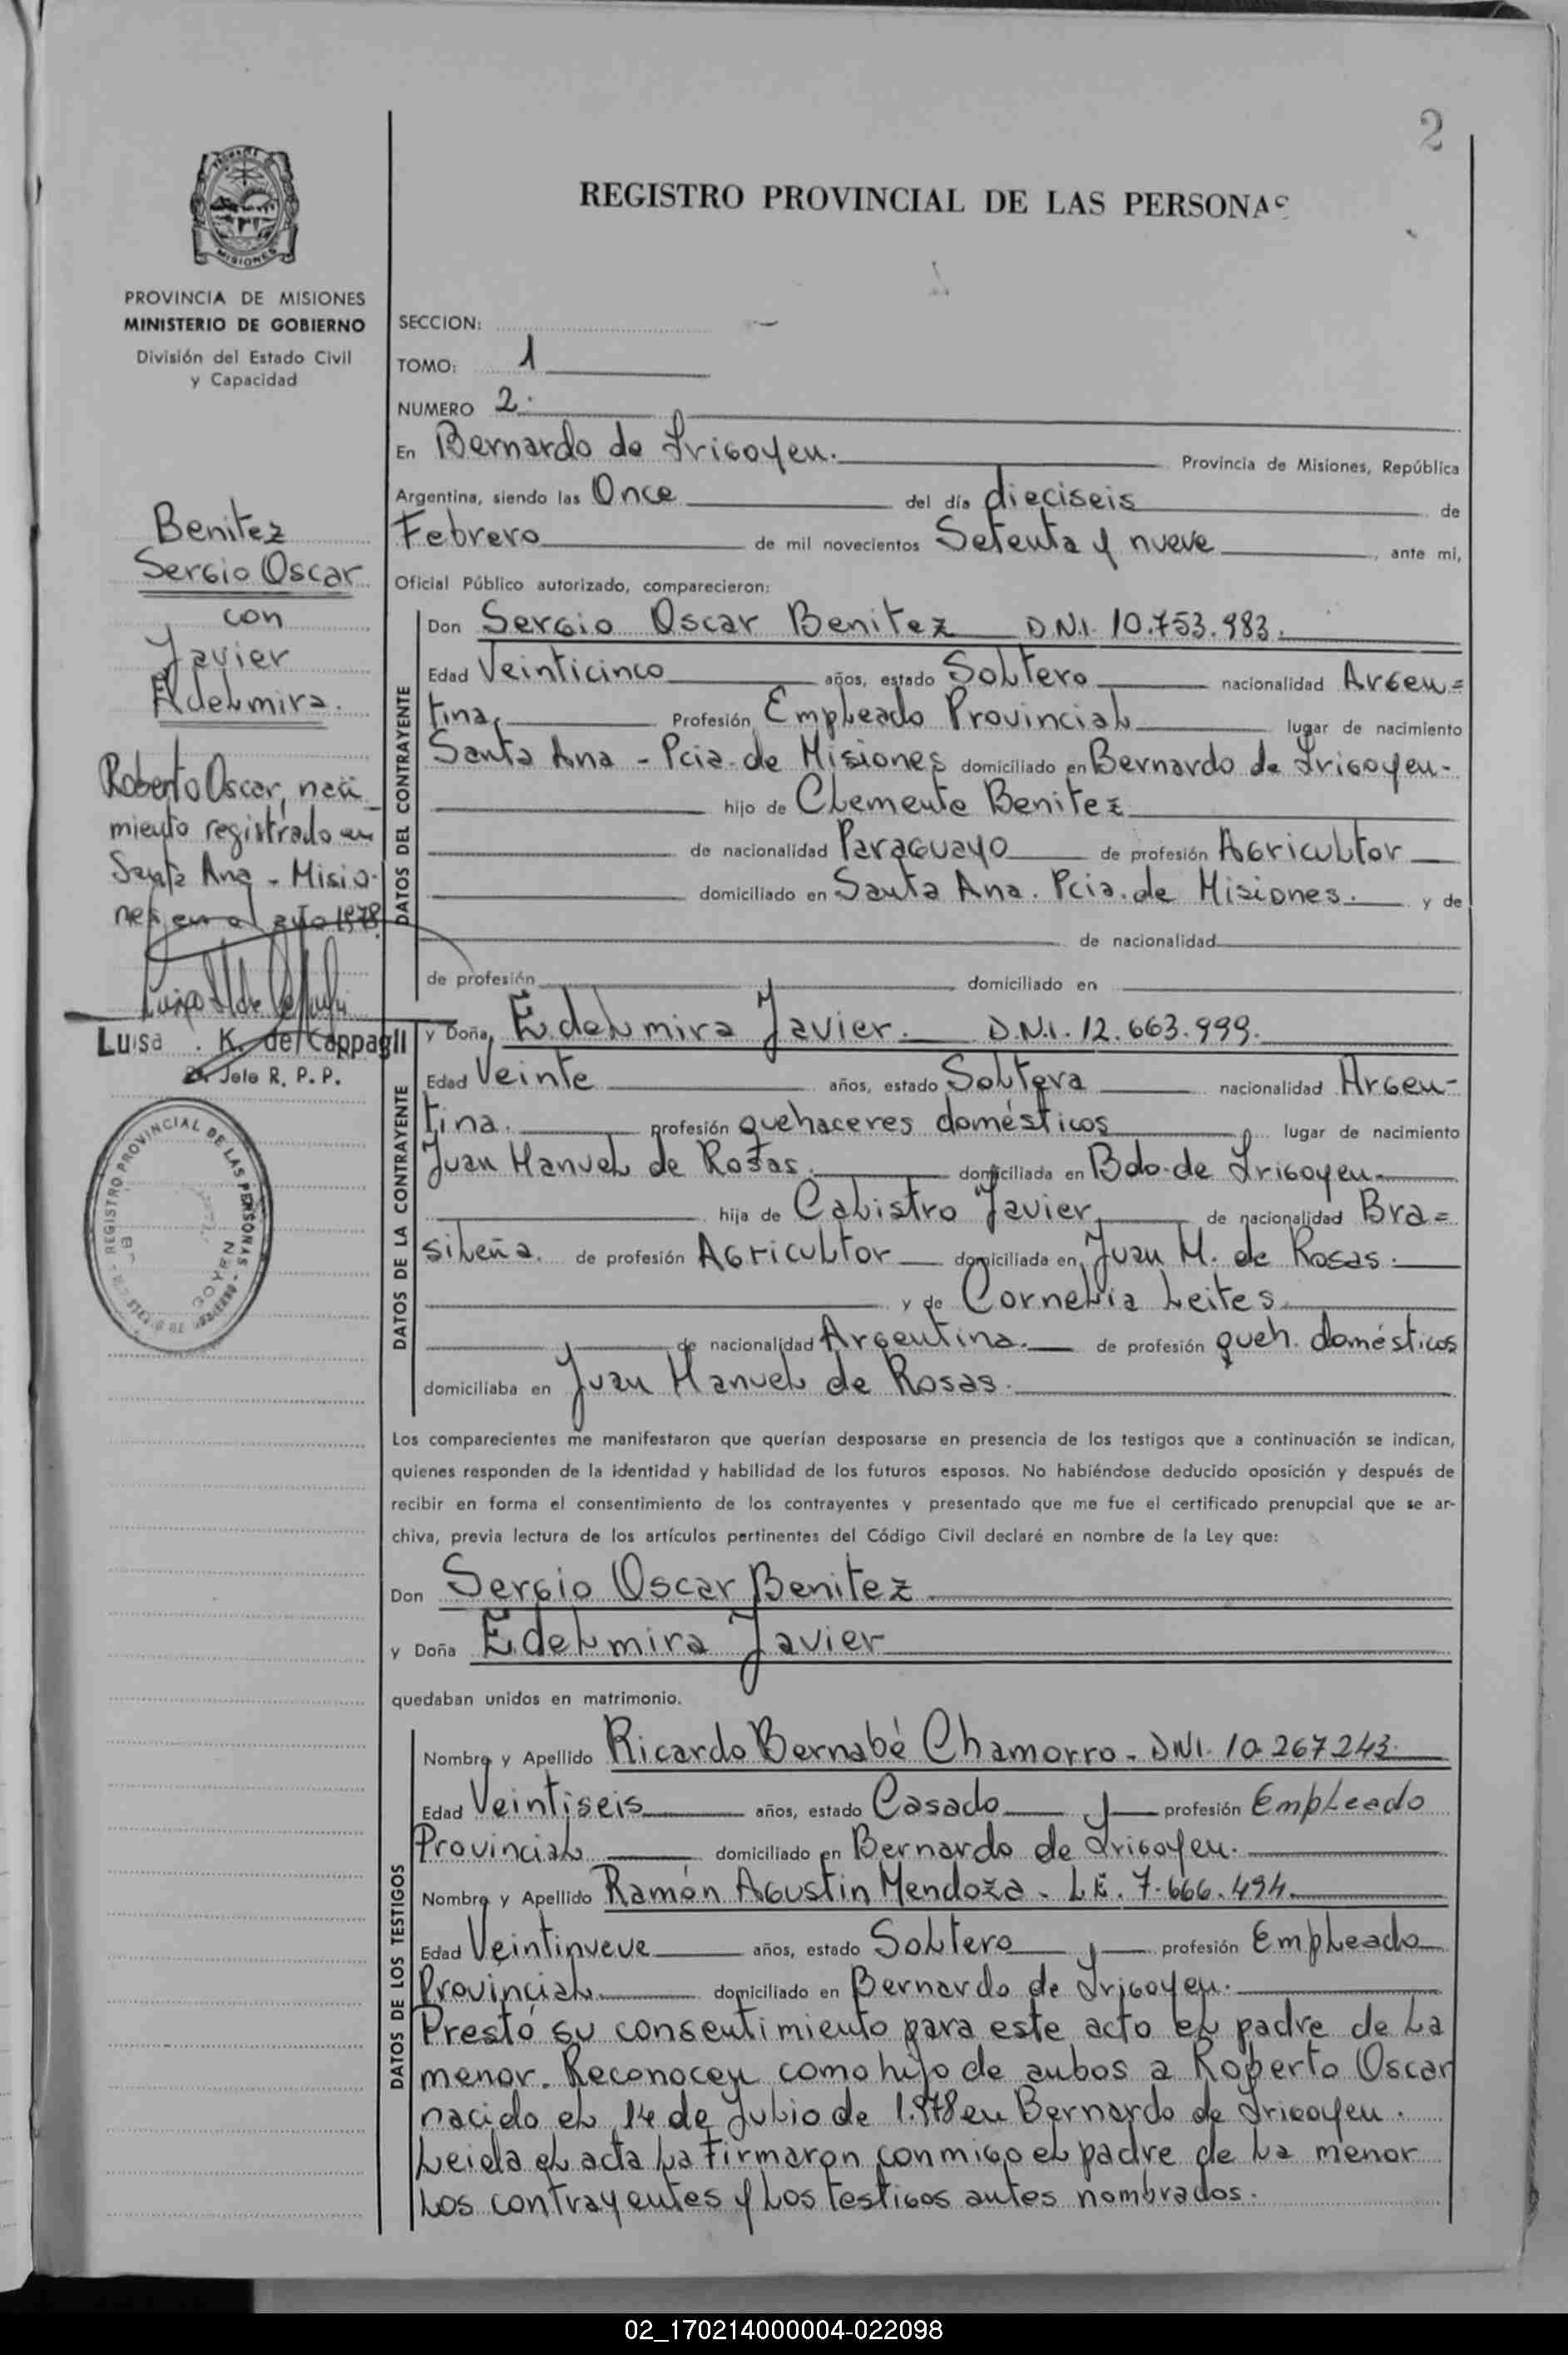 2
REGISTRO PROVINCIAL DE LAS PERSONAS
MISIONES
PROVINCIA DE MISIONES
MINISTERIO DE GOBIERNO
División del Estado Civil
y Capacidad
SECCION:
TOMO: 1
NUMERO 2.
En Bernardo de Irigoyen. Provincia de Misiones, República
Argentina, siendo las Once del día dieciseis de
Febrero de mil novecientos Setenta y nueve, ante mi,
Oficial Público autorizado, comparecieron:
Benitez
Sergio Oscar
con
Javier
Edelmira.
Roberto Oscar, naci
miento registrado en
Santa Ana - Misio-
nes en el año 1978.
Luisa K. de Cappagli
Jefe R. P. P.
REGISTRO PROVINCIAL DE LAS PERSONAS
DATOS DEL CONTRAYENTE
Don Sergio Oscar Benitez D.N.I. 10.753.983.
Edad Veinticinco años, estado Soltero nacionalidad Argen=
tina, Profesión Empleado Provincial lugar de nacimiento
Santa Ana - Pcia. de Misiones domiciliado en Bernardo de Irigoyen-
hijo de Clemente Benitez
de nacionalidad Paraguayo de profesión Agricultor
domiciliado en Santa Ana. Pcia. de Misiones. y de
de nacionalidad
de profesión domiciliado en
DATOS DE LA CONTRAYENTE
y Doña, Edelmira Javier. D.N.I. 12.663.999.
Edad Veinte años, estado Soltera nacionalidad Argen-
tina. profesión quehaceres domésticos lugar de nacimiento
Juan Manuel de Rosas. domiciliada en Bdo. de Irigoyen
hija de Calistro Javier de nacionalidad Bra=
sileña. de profesión Agricultor domiciliada en, Juan M. de Rosas.
y de Cornelia Leites
de nacionalidad Argentina. de profesión queh. domésticos
domiciliaba en Juan Manuel de Rosas.
Los comparecientes me manifestaron que querían desposarse en presencia de los testigos que a continuación se indican,
quienes responden de la identidad y habilidad de los futuros esposos. No habiéndose deducido oposición y después de
recibir en forma el consentimiento de los contrayentes y presentado que me fue el certificado prenupcial que se ar-
chiva, previa lectura de los artículos pertinentes del Código Civil declaré en nombre de la Ley que:
Don Sergio Oscar Benitez
y Doña Edelmira Javier
quedaban unidos en matrimonio.
DATOS DE LOS TESTIGOS
Nombre y Apellido Ricardo Bernabé Chamorro - DNI. 10.267243.
Edad Veintiseis años, estado Casado profesión Empleado
Provincial domiciliado en Bernardo de Irigoyen.
Nombre y Apellido Ramón Agustin Mendoza - L.E. 7.666.494.
Edad Veintinueve años, estado Soltero profesión Empleado
Provincial domiciliado en Bernardo de Irigoyen.
Prestó su consentimiento para este acto el padre de la
menor. Reconocen como hijo de ambos a Roberto Oscar
nacido el 14 de Julio de 1.978 en Bernardo de Irigoyen.
Leida el acta la firmaron conmigo el padre de la menor
los contrayentes y los testigos antes nombrados.
02_170214000004-022098